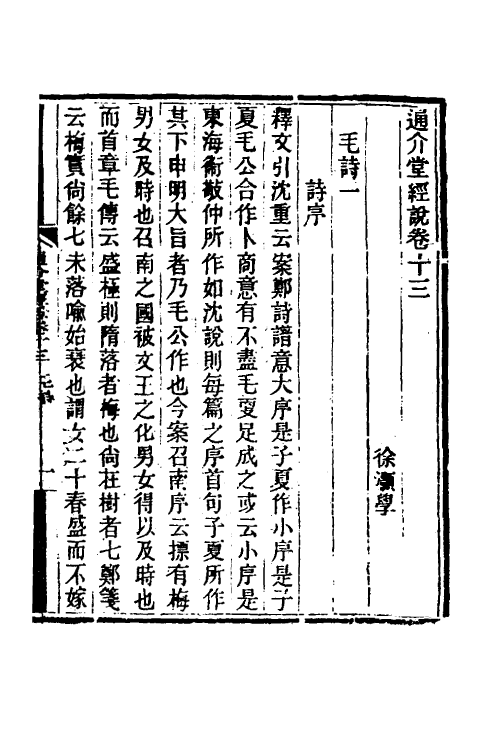 通介堂經說卷十三
徐灝學
毛詩一
詩序
釋文引沈重云案鄭詩譜意大序是子夏作小序是子
夏毛公合作卜商意有不盡毛更足成之或云小序是
東海衞敬仲所作如沈說則每篇之序首句子夏所作
其下申明大旨者乃毛公作也今案召南序云摽有梅
男女及時也召南之國被文王之化男女得以及時也
而首章毛傳云盛極則隋落者梅也尙在樹者七鄭箋
云梅實尙餘七未落喻始衰也謂女二十春盛而不嫁